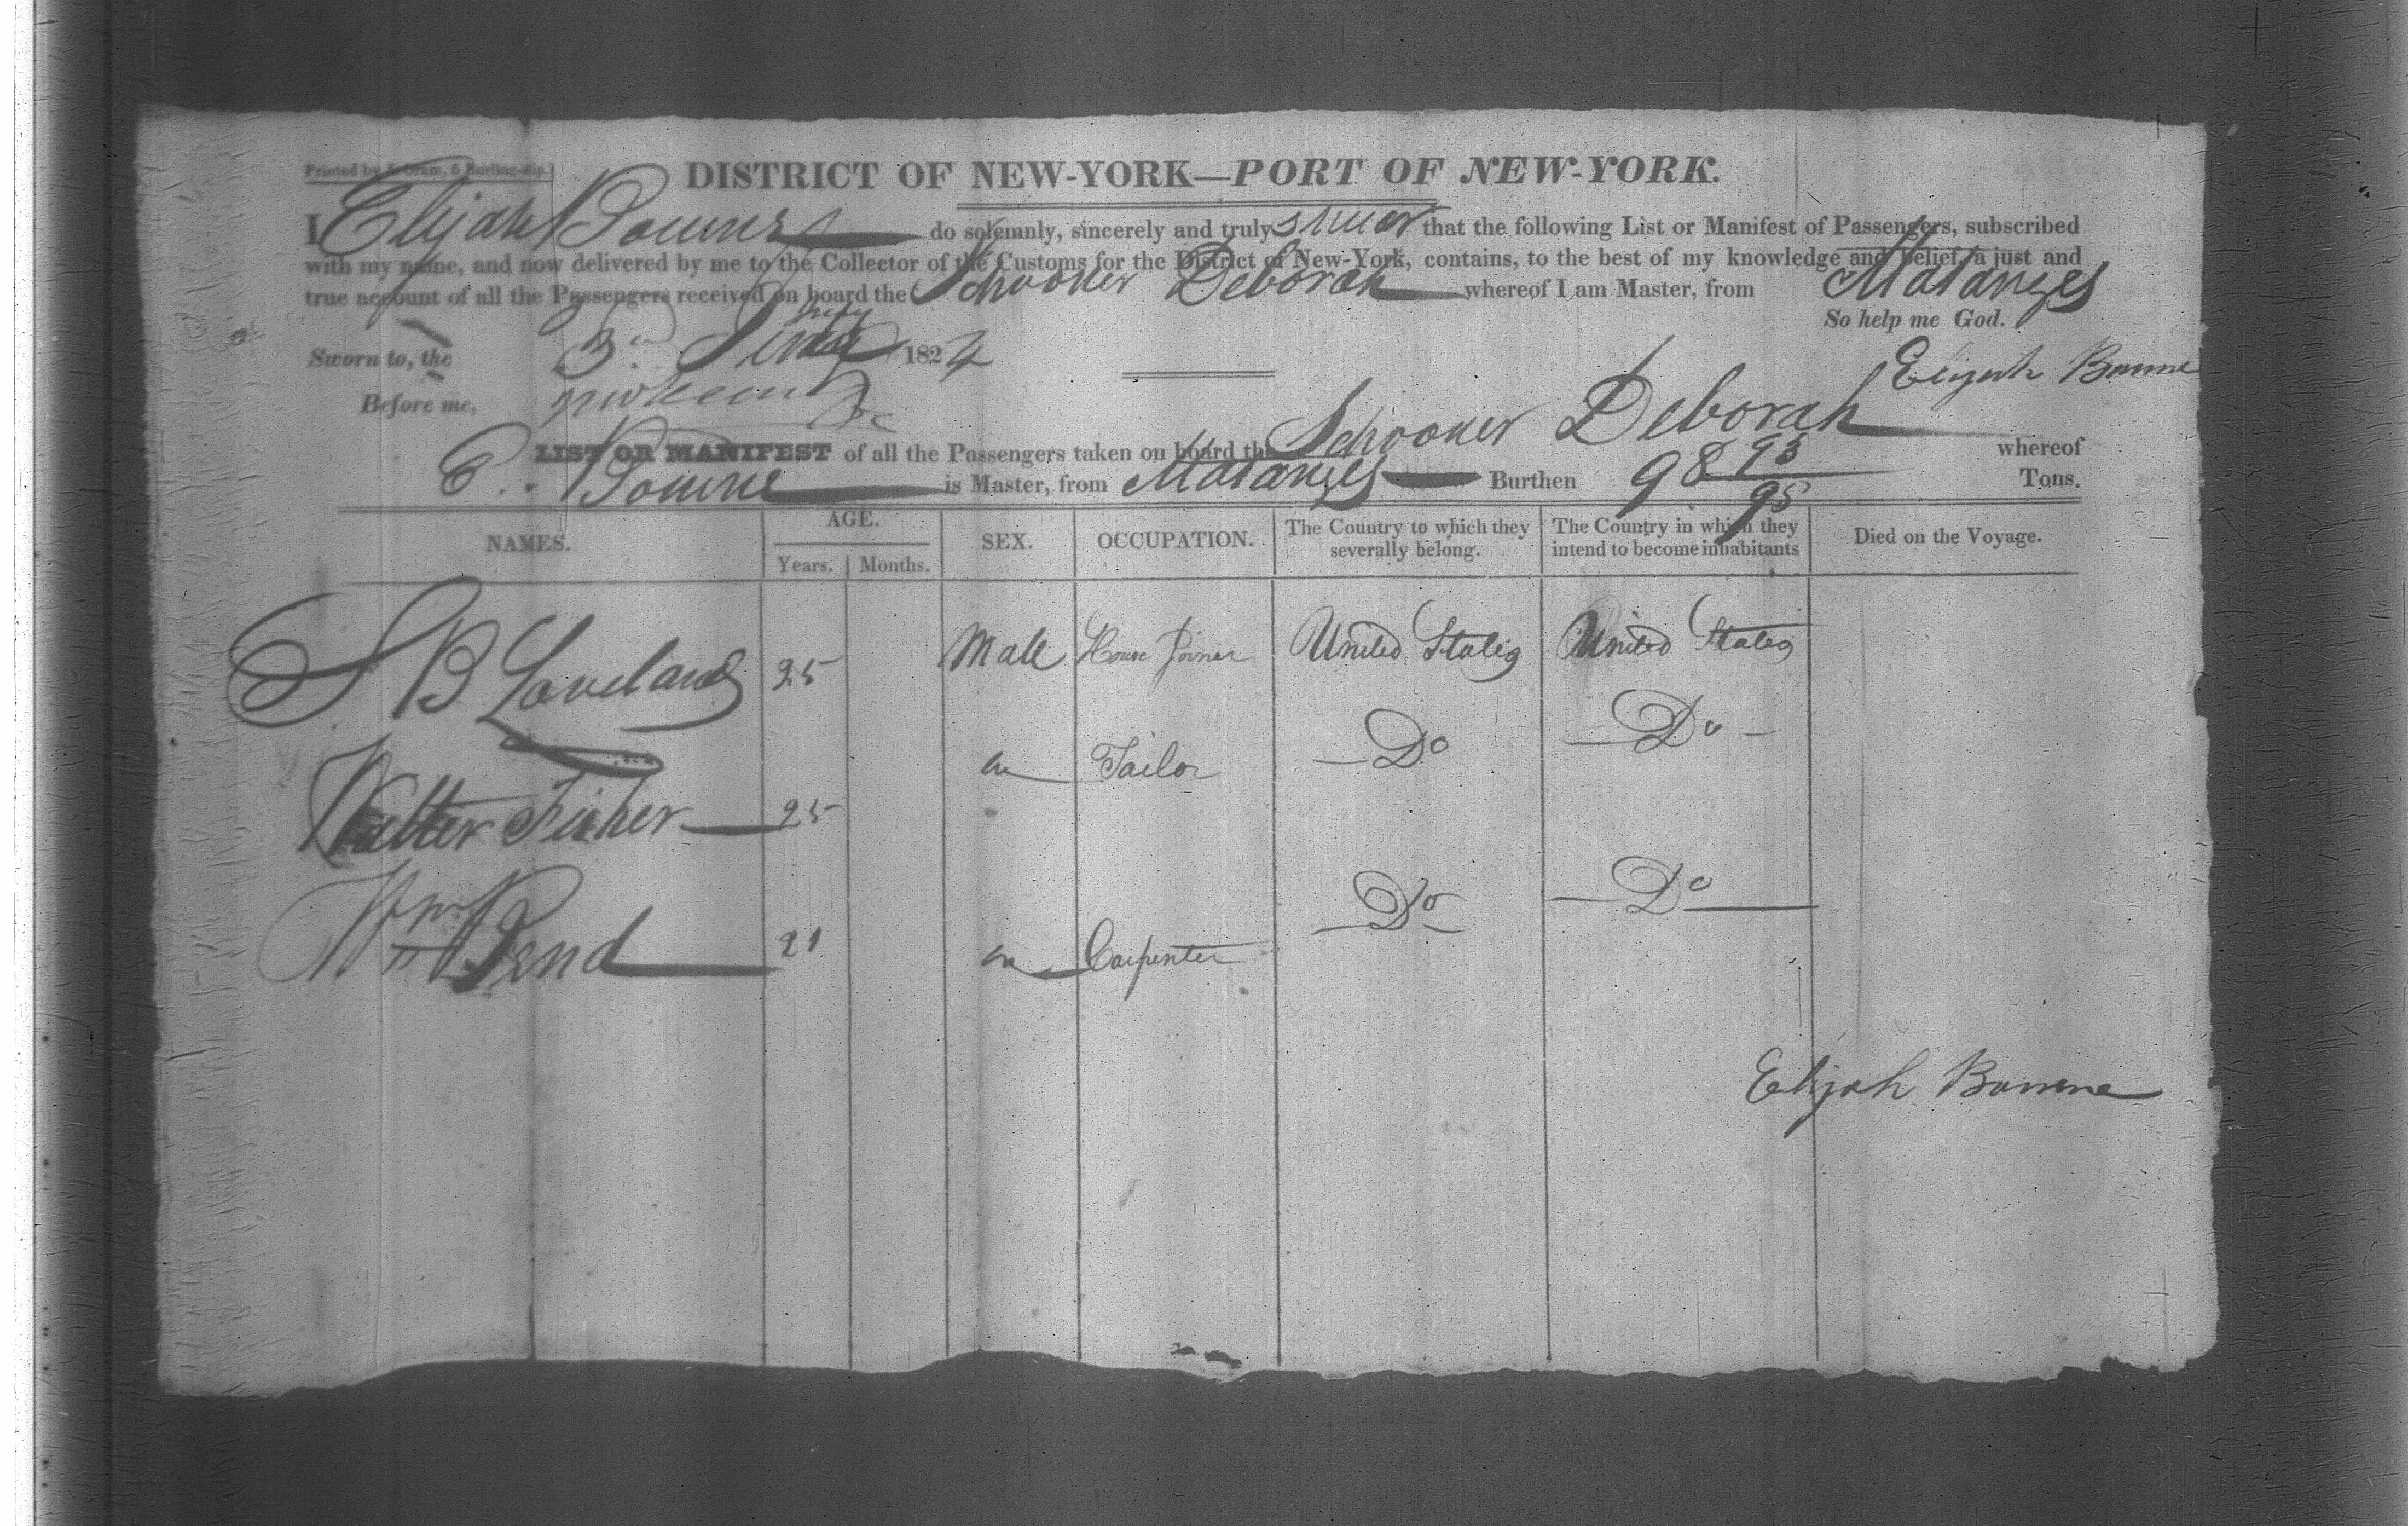 Printed by J. Oram, 6 Burling-slip.
DISTRICT OF NEW-YORK—PORT OF NEW-YORK.
I Elijah Bourne do solemnly, sincerely and truly swear that the following List or Manifest of Passengers, subscribed
with my name, and now delivered by me to the Collector of the Customs for the District of New-York, contains, to the best of my knowledge and belief, a just and
true account of all the Passengers received on board the Schooner Deborah whereof I am Master, from Matanzes
So help me God.
Sworn to, the 3d July 1824
Elijah Bourne
Before me,
LIST OR MANIFEST of all the Passengers taken on board the Schooner Deborah whereof
E. Bourne is Master, from Matanzes Burthen 98 93/95 Tons.
NAMES. AGE. Years. Months. SEX. OCCUPATION. The Country to which they severally belong. The Country in which they intend to become inhabitants Died on the Voyage.
S B Loveland 25 Male House Joiner United States United States
Walter Fisher 25 Tailor Do Do
Wm 21 Carpenter Do Do
Elijah Bourne